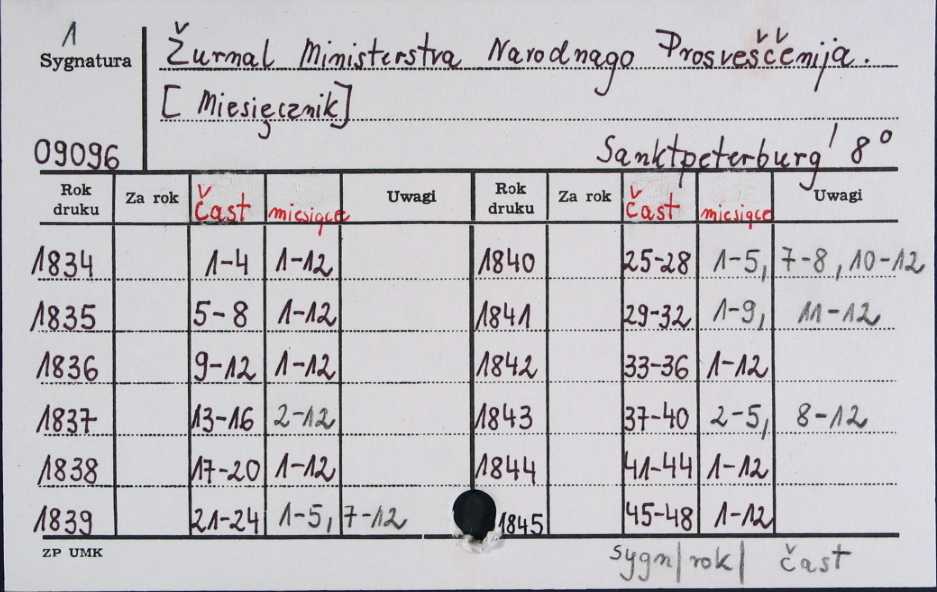 1
Sygnatura
Žurnal Ministerstva Narodnago Prosveščenija.
[Miesięcznik]
09096
Sanktpeterburg' 8°
Rok druku Za rok Čast miesiące Uwagi Rok druku Za rok Čast miesiące Uwagi
1834 1-4 1-12 1840 25-28 1-5, 7-8, 10-12
1835 5-8 1-12 1841 29-32 1-9, 11-12
1836 9-12 1-12 1842 33-36 1-12
1837 13-16 2-12 1843 37-40 2-5, 8-12
1838 17-20 1-12 1844 41-44 1-12
1839 21-24 1-5, 7-12 1845 45-48 1-12
ZP UMK
sygn/rok/ čast